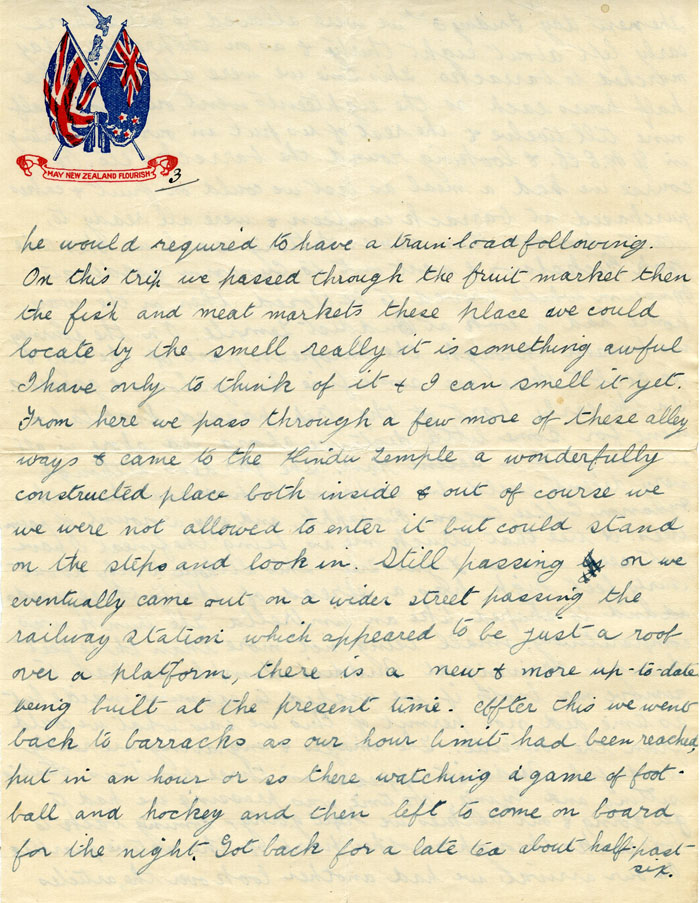 MAY NEW ZEALAND FLOURISH
3
he would required to have a train load following.
On this trip we passed through the fruit market then
the fish and meat markets these place we could
locate by the smell really it is something awful
I have only to think of it & I can smell it yet.
From here we pass through a few more of these alley
ways & came to the Hindu Temple a wonderfully
constructed place both inside & out of course we
we were not allowed to enter it but could stand
on the steps and look in. Still passing on we
eventually came out on a wider street passing the
railway station which appeared to be just a roof
over a platform, there is a new & more up-to-date
being built at the present time. After this we went
back to barracks as our hour limit had been reached,
put in an hour or so there watching a game of foot-
ball and hockey and then left to come on board
for the night. Got back for a late tea about half-past
six.